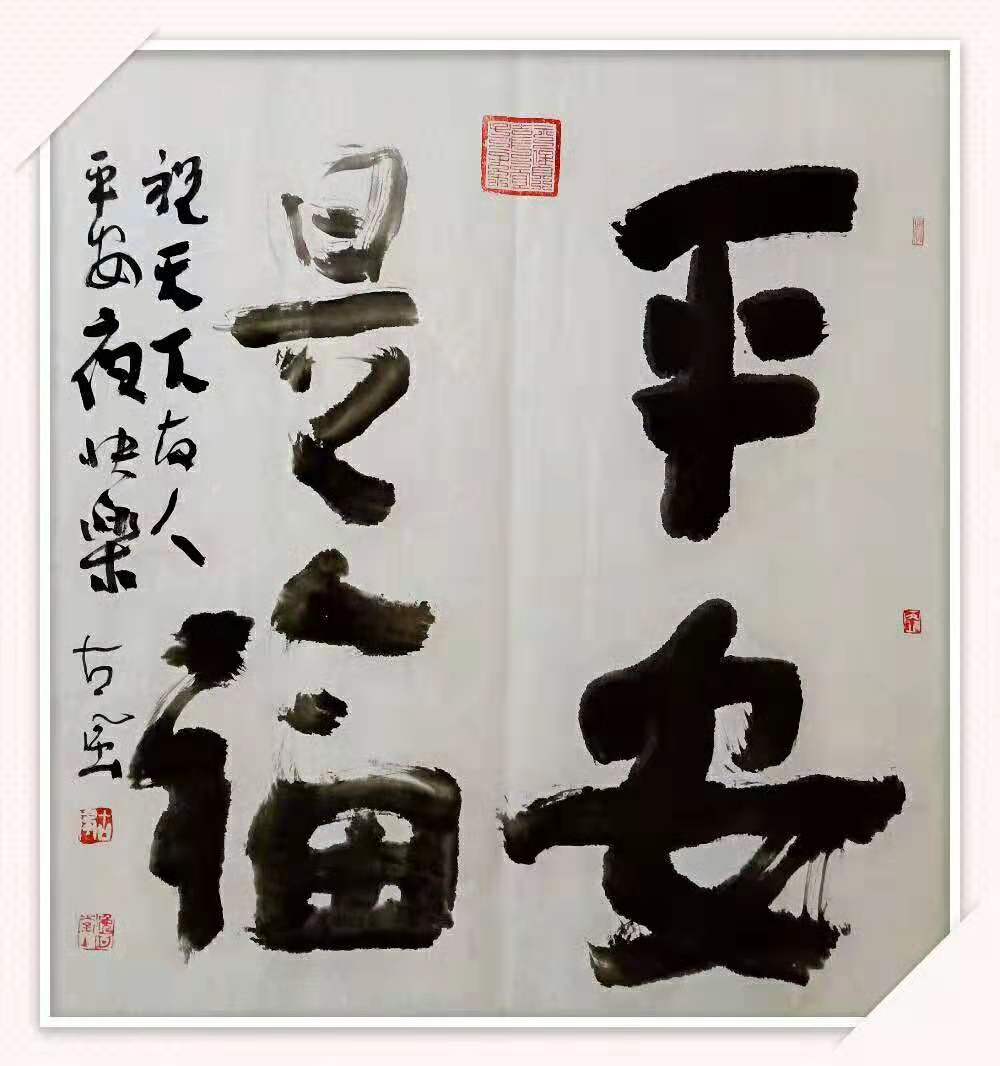 平安
是福
祝天下友人
平安夜快樂
古罡